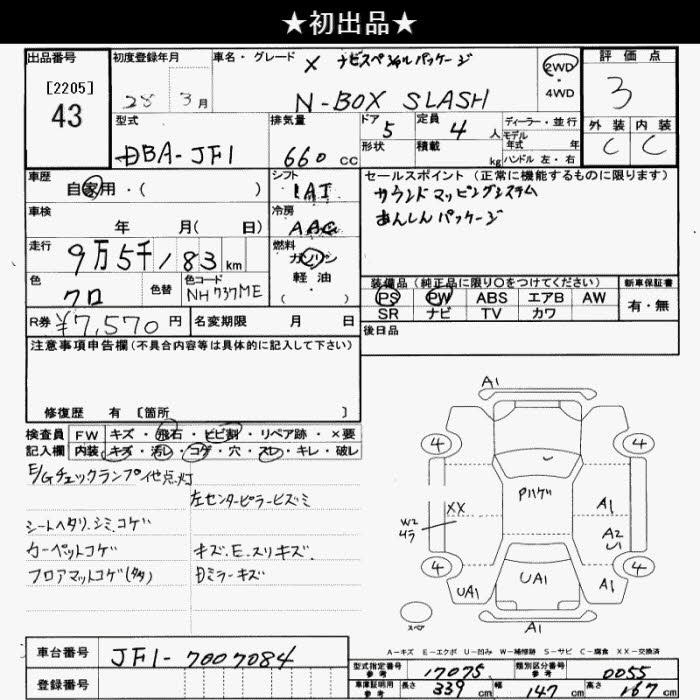 ★初出品★
出品番号 初度登録年月 車名・グレード X ナビスペシャルパッケージ 2WD・4WD 評価点
[2205] 43 28 3月 N-BOX SLASH 3
型式 DBA-JF1 排気量 660 cc ドア 5 定員 4 人 ディーラー・並行
モデル年式 年
形状 積載 kg ハンドル 左・右
外装 内装
C C
車歴 自家用・( ) シフト IAT
セールスポイント(正常に機能するものに限ります)
サウンドマッピングシステム
あんしんパッケージ
車検 年 月( 日) 冷房 AAC
走行 9万5千183 km 燃料 ガソリン
軽・油
( )
色 クロ 色替 色コード NH737ME
装備品(純正品に限り○をつけてください) 新車保証書
PS PW ABS エアB AW 有・無
SR ナビ TV カワ
R券 ¥7,570円 名変期限 月 日
後日品
注意事項申告欄(不具合内容等は具体的に記入して下さい)
修復歴 有 [箇所 ]
検査員 FW キズ・飛石・ヒビ割・リペア跡・×要
記入欄 内装 キズ・汚レ・コゲ・穴・スレ・キレ・破レ
E/Gチェックランプ他点灯
左センターピラーヒズミ
シートヘタリ.シミ.コゲ
カーペットコゲ キズ.E.スリキズ.
フロアマットコゲ(多) Dミラーキズ
A1
4 4
Pハゲ
XX
W2
A1
A2
U1
4 4
UA1 UA1 A1
スペア
A1
A-キズ E-エクボ U-凹み W-補修跡 S-サビ C-腐食 XX-交換済
車台番号 JF1-7007084
登録番号
型式指定番号 参考 17075 類別区分番号 参考 0055
車庫証明用 参考 長さ 339 cm 幅 147 cm 高さ 167 cm